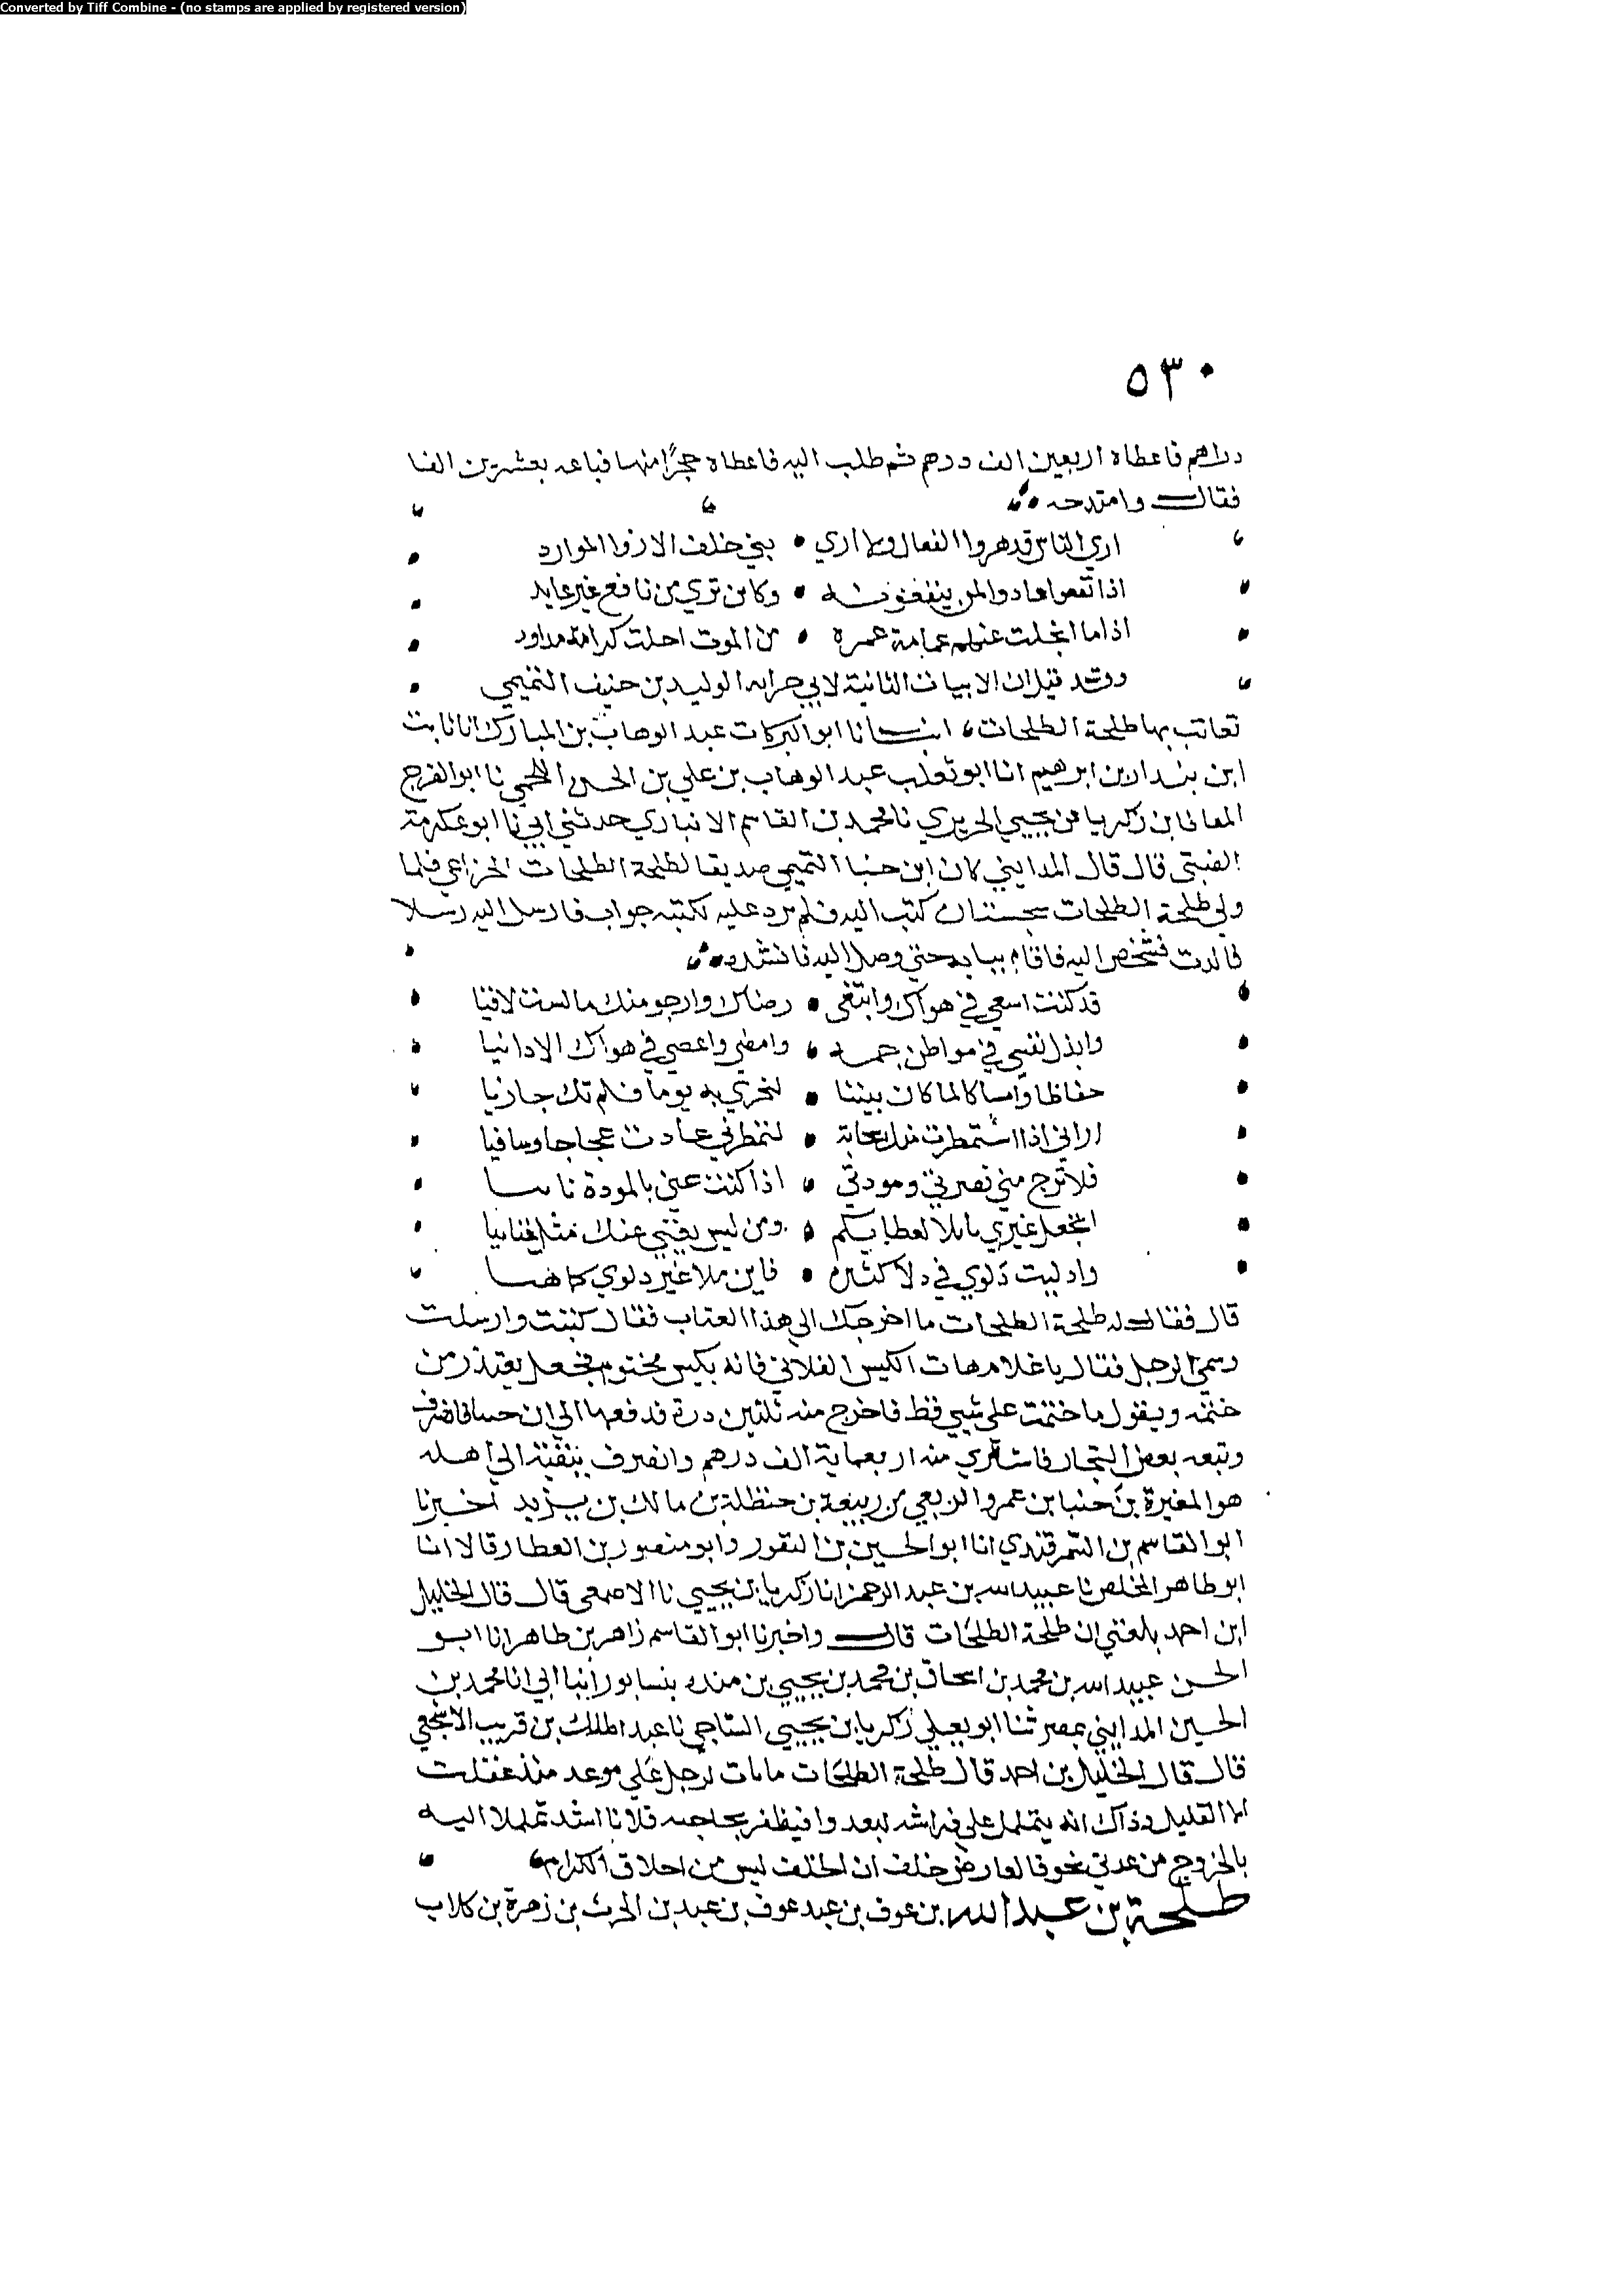 Converted by Tiff Combine - (no stamps are applied by registered version)
٥٣٠
دراهم فاعطاه اربعين الف درهم ثم طلب اليه فاعطاه حجرًا منها فباعه بعشرين الفا
فقال وامتدحه
اري الناس قد هروا الفعال ولا اري • بني خلف الا روا الموارد
اذا نفعوا عادوا لمن ينفعونه • وكاين تري من نافع غير عايد
اذا ما انجلت عنهم عمامة غمرة • من الموت احلت كرامة مداود
وقد قيل ان الابيات الثانية لابي حزابه الوليد بن حنيف التميمي
تعاتب بها طلحة الطلحات، انبانا ابو البركات عبد الوهاب بن المبارك انا ثابت
ابن بندار بن ابرهيم انا ابو تغلب عبد الوهاب بن علي بن الحسن اللحمي نا ابو الفرج
المعافا بن زكريا بن يحيي الجريري نا محمد بن القاسم الانباري حدثني ابي نا ابو عكرمة
الضبي قال قال المدايني كان ابن حبنا التميمي صديقا لطلحة الطلحات الخزاعي فلما
ولي طلحة الطلحات سجستان كتب اليه فلم يرد عليه لكتبه جواب فارسل اليه رسلا
فشخص اليه فاقام ببابه حتي وصل اليه فانشده
قد كنت اسعي في هواك وابتغي • رضاك وارجو منك ما لست لاقيا
وابذل نفسي في مواطن جمه • وامضي واعصي في هواك الادانيا
حفاظا وامساكا لما كان بيننا • لتجزي به يوما فلم تك جازيا
اراني اذا استمطرت منك سحابة • لتمطرني عادت عجاجا وسافيا
فلا ترج مني نصرتي ومودتي • اذا كنت عني بالمودة نايبا
اتجعل غيري مايلا لعطايكم • ومن ليس يغني عنك مثل غنائيا
وادليت دلوي في دلاء كثيرة • فابن ملا غير دلوي كما هيا
قال فقال له طلحة الطلحات ما اخرجك الي هذا العتاب فقال كتبت وارسلت
وسمي الرجل فقال يا غلام هات الكيس الفلاني فاته بكيس مختوم فجعل يعتذر من
ختمه ويقول ما ختمت علي شيي قط فاخرج منه ثلثين درة فدفعها الي ابن حبنا فانصرف
وتبعه بعض التجار فاشتري منه اربعماية الف درهم وانصرف ببقيتة الي اهله
هو المغيرة بن حبنا بن عمرو الربعي من ربيعة بن حنظلة بن مالك بن يزيد اخبرنا
ابو القاسم بن السمرقندي انا ابو الحسين بن النقور وابو منصور بن العطار قالا انا
ابو طاهر المخلص نا عبيد الله بن عبد الرحمن انا زكريا بن يحيي نا الاصمعي قال قال الخليل
ابن احمد بلغني ان طلحة الطلحات قال واخبرنا ابو القاسم زاهر بن طاهر انا ابو
الحسن عبيد الله بن محمد بن اسحاق بن محمد بن يحيي بن منده بنسابور انبا ابي انا محمد بن
الحسين المدايني بمصر ثنا ابو يعلي زكريا بن يحيي الساجي نا عبد الملك بن قريب الاصمعي
قال قال الخليل بن احمد قال طلحة الطلحات ما بات لرجل علي موعد منذ عقلت
الا القليل وذاك انه يتململ علي فراشه ليغدو فيظفر بحاجته فلانا اشد تململا اليه
بالخروج من عدتي خوفا لعارض خلف ان الخلف ليس من اخلاق الكرام
طلحة بن عبد الله بن عوف بن عبد عوف بن عبد بن الحرث بن زهرة بن كلاب